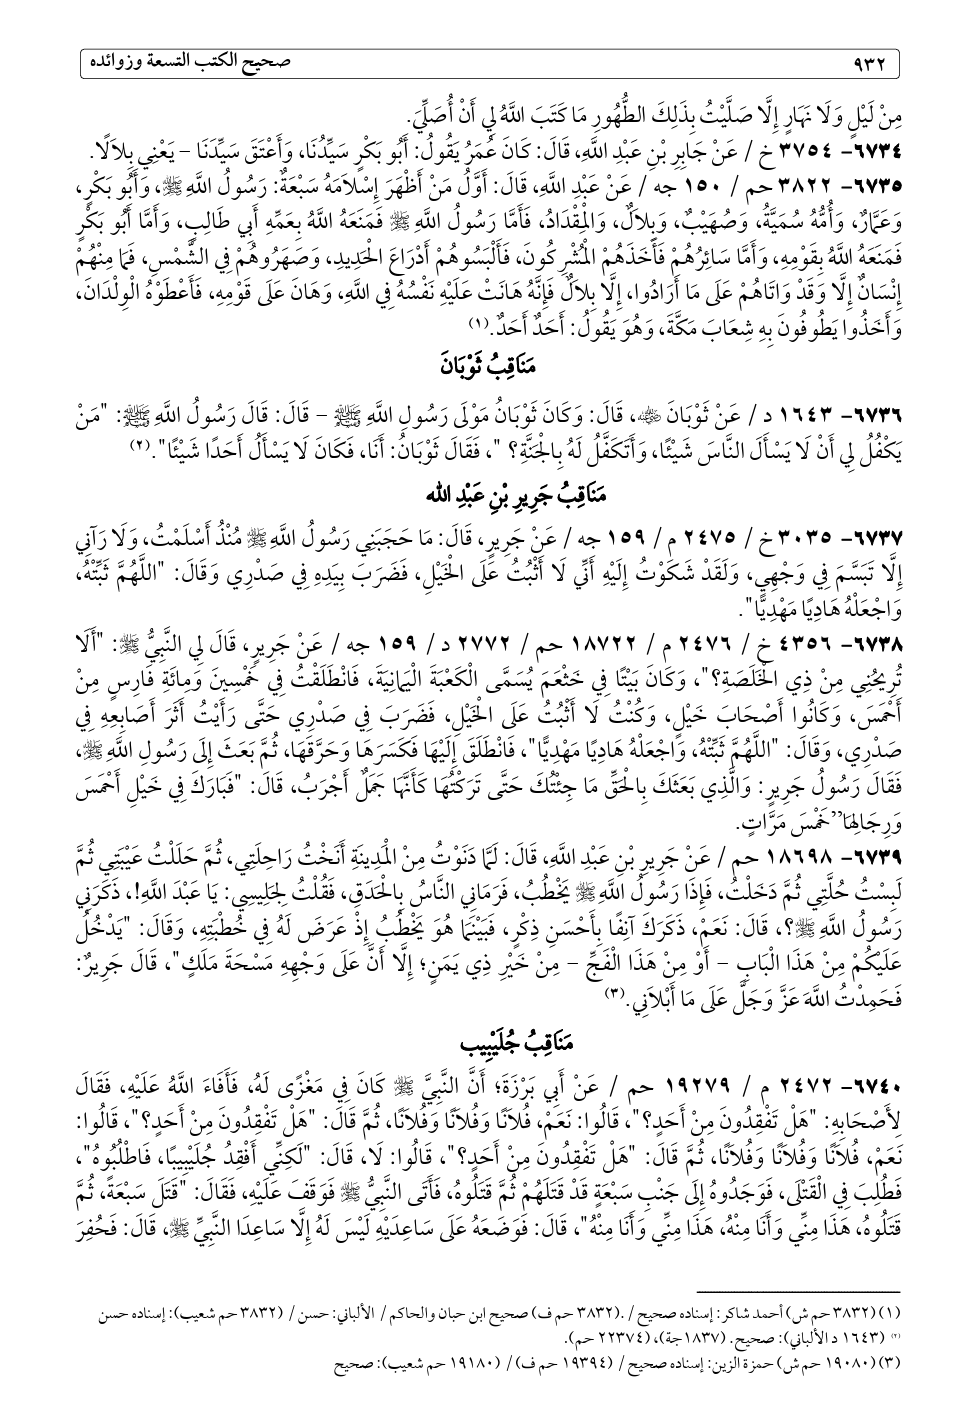 ٩٣٢ صحيح الكتب التسعة وزوائده
مِنْ لَيْلٍ وَلَا نَهَارٍ إِلَّا صَلَّيْتُ بِذَلِكَ الطُّهُورِ مَا كَتَبَ اللَّهُ لِي أَنْ أُصَلِّيَ.
٦٧٣٤- ٣٧٥٤ خ / عَنْ جَابِرِ بْنِ عَبْدِ اللَّهِ، قَالَ: كَانَ عُمَرُ يَقُولُ: أَبُو بَكْرٍ سَيِّدُنَا، وَأَعْتَقَ سَيِّدَنَا - يَعْنِي بِلاَلًا.
٦٧٣٥- ٣٨٢٢ حم / ١٥٠ جه / عَنْ عَبْدِ اللَّهِ، قَالَ: أَوَّلُ مَنْ أَظْهَرَ إِسْلاَمَهُ سَبْعَةٌ: رَسُولُ اللَّهِ ﷺ، وَأَبُو بَكْرٍ،
وَعَمَّارٌ، وَأُمُّهُ سُمَيَّةُ، وَصُهَيْبٌ، وَبِلاَلٌ، وَالْمِقْدَادُ، فَأَمَّا رَسُولُ اللَّهِ ﷺ فَمَنَعَهُ اللَّهُ بِعَمِّهِ أَبِي طَالِبٍ، وَأَمَّا أَبُو بَكْرٍ
فَمَنَعَهُ اللَّهُ بِقَوْمِهِ، وَأَمَّا سَائِرُهُمْ فَأَخَذَهُمْ الْمُشْرِكُونَ، فَأَلْبَسُوهُمْ أَدْرَاعَ الْحَدِيدِ، وَصَهَرُوهُمْ فِي الشَّمْسِ، فَمَا مِنْهُمْ
إِنْسَانٌ إِلَّا وَقَدْ وَاتَاهُمْ عَلَى مَا أَرَادُوا، إِلَّا بِلاَلٌ فَإِنَّهُ هَانَتْ عَلَيْهِ نَفْسُهُ فِي اللَّهِ، وَهَانَ عَلَى قَوْمِهِ، فَأَعْطَوْهُ الْوِلْدَانَ،
وَأَخَذُوا يَطُوفُونَ بِهِ شِعَابَ مَكَّةَ، وَهُوَ يَقُولُ: أَحَدٌ أَحَدٌ.(١)
مَنَاقِبُ ثَوْبَانَ
٦٧٣٦- ١٦٤٣ د / عَنْ ثَوْبَانَ ﵁، قَالَ: وَكَانَ ثَوْبَانُ مَوْلَى رَسُولِ اللَّهِ ﷺ - قَالَ: قَالَ رَسُولُ اللَّهِ ﷺ: "مَنْ
يَكْفُلُ لِي أَنْ لَا يَسْأَلَ النَّاسَ شَيْئًا، وَأَتَكَفَّلُ لَهُ بِالْجَنَّةِ؟ "، فَقَالَ ثَوْبَانُ: أَنَا، فَكَانَ لَا يَسْأَلُ أَحَدًا شَيْئًا".(٢)
مَنَاقِبُ جَرِيرِ بْنِ عَبْدِ الله
٦٧٣٧- ٣٠٣٥ خ / ٢٤٧٥ م / ١٥٩ جه / عَنْ جَرِيرٍ، قَالَ: مَا حَجَبَنِي رَسُولُ اللَّهِ ﷺ مُنْذُ أَسْلَمْتُ، وَلَا رَآنِي
إِلَّا تَبَسَّمَ فِي وَجْهِي، وَلَقَدْ شَكَوْتُ إِلَيْهِ أَنِّي لَا أَثْبُتُ عَلَى الْخَيْلِ، فَضَرَبَ بِيَدِهِ فِي صَدْرِي وَقَالَ: "اللَّهُمَّ ثَبِّتْهُ،
وَاجْعَلْهُ هَادِيًا مَهْدِيًّا".
٦٧٣٨- ٤٣٥٦ خ / ٢٤٧٦ م / ١٨٧٢٢ حم / ٢٧٧٢ د / ١٥٩ جه / عَنْ جَرِيرٍ، قَالَ لِي النَّبِيُّ ﷺ: "أَلَا
تُرِيحُنِي مِنْ ذِي الْخَلَصَةِ؟"، وَكَانَ بَيْتًا فِي خَثْعَمَ يُسَمَّى الْكَعْبَةَ الْيَمَانِيَةَ، فَانْطَلَقْتُ فِي خَمْسِينَ وَمِائَةِ فَارِسٍ مِنْ
أَحْمَسَ، وَكَانُوا أَصْحَابَ خَيْلٍ، وَكُنْتُ لَا أَثْبُتُ عَلَى الْخَيْلِ، فَضَرَبَ فِي صَدْرِي حَتَّى رَأَيْتُ أَثَرَ أَصَابِعِهِ فِي
صَدْرِي، وَقَالَ: "اللَّهُمَّ ثَبِّتْهُ، وَاجْعَلْهُ هَادِيًا مَهْدِيًّا"، فَانْطَلَقَ إِلَيْهَا فَكَسَرَهَا وَحَرَّقَهَا، ثُمَّ بَعَثَ إِلَى رَسُولِ اللَّهِ ﷺ،
فَقَالَ رَسُولُ جَرِيرٍ: وَالَّذِي بَعَثَكَ بِالْحَقِّ مَا جِئْتُكَ حَتَّى تَرَكْتُهَا كَأَنَّهَا جَمَلٌ أَجْرَبُ، قَالَ: "فَبَارَكَ فِي خَيْلِ أَحْمَسَ
وَرِجَالِهَا"خَمْسَ مَرَّاتٍ.
٦٧٣٩- ١٨٦٩٨ حم / عَنْ جَرِيرِ بْنِ عَبْدِ اللَّهِ، قَالَ: لَمَّا دَنَوْتُ مِنْ الْمَدِينَةِ أَنَخْتُ رَاحِلَتِي، ثُمَّ حَلَلْتُ عَيْبَتِي ثُمَّ
لَبِسْتُ حُلَّتِي ثُمَّ دَخَلْتُ، فَإِذَا رَسُولُ اللَّهِ ﷺ يَخْطُبُ، فَرَمَانِي النَّاسُ بِالْحَدَقِ، فَقُلْتُ لِجَلِيسِي: يَا عَبْدَ اللَّهِ!، ذَكَرَنِي
رَسُولُ اللَّهِ ﷺ؟، قَالَ: نَعَمْ، ذَكَرَكَ آنِفًا بِأَحْسَنِ ذِكْرٍ، فَبَيْنَمَا هُوَ يَخْطُبُ إِذْ عَرَضَ لَهُ فِي خُطْبَتِهِ، وَقَالَ: "يَدْخُلُ
عَلَيْكُمْ مِنْ هَذَا الْبَابِ - أَوْ مِنْ هَذَا الْفَجِّ - مِنْ خَيْرِ ذِي يَمَنٍ؛ إِلَّا أَنَّ عَلَى وَجْهِهِ مَسْحَةَ مَلَكٍ"، قَالَ جَرِيرٌ:
فَحَمِدْتُ اللَّهَ عَزَّ وَجَلَّ عَلَى مَا أَبْلاَنِي.(٣)
مَنَاقِبُ جُلَيْبِيب
٦٧٤٠- ٢٤٧٢ م / ١٩٢٧٩ حم / عَنْ أَبِي بَرْزَةَ؛ أَنَّ النَّبِيَّ ﷺ كَانَ فِي مَغْزًى لَهُ، فَأَفَاءَ اللَّهُ عَلَيْهِ، فَقَالَ
لِأَصْحَابِهِ: "هَلْ تَفْقِدُونَ مِنْ أَحَدٍ؟"، قَالُوا: نَعَمْ، فُلاَنًا وَفُلاَنًا وَفُلاَنًا، ثُمَّ قَالَ: "هَلْ تَفْقِدُونَ مِنْ أَحَدٍ؟"، قَالُوا:
نَعَمْ، فُلاَنًا وَفُلاَنًا وَفُلاَنًا، ثُمَّ قَالَ: "هَلْ تَفْقِدُونَ مِنْ أَحَدٍ؟"، قَالُوا: لَا، قَالَ: "لَكِنِّي أَفْقِدُ جُلَيْبِيبًا، فَاطْلُبُوهُ"،
فَطُلِبَ فِي الْقَتْلَى، فَوَجَدُوهُ إِلَى جَنْبِ سَبْعَةٍ قَدْ قَتَلَهُمْ ثُمَّ قَتَلُوهُ، فَأَتَى النَّبِيُّ ﷺ فَوَقَفَ عَلَيْهِ، فَقَالَ: "قَتَلَ سَبْعَةً، ثُمَّ
قَتَلُوهُ، هَذَا مِنِّي وَأَنَا مِنْهُ، هَذَا مِنِّي وَأَنَا مِنْهُ"، قَالَ: فَوَضَعَهُ عَلَى سَاعِدَيْهِ لَيْسَ لَهُ إِلَّا سَاعِدَا النَّبِيِّ ﷺ، قَالَ: فَحُفِرَ
(١) (٣٨٣٢ حم ش) أحمد شاكر: إسناده صحيح / .(٣٨٣٢ حم ف) صحيح ابن حبان والحاكم / الألباني: حسن / (٣٨٣٢ حم شعيب): إسناده حسن
(٢) (١٦٤٣ د الألباني): صحيح. (١٨٣٧جة)، (٢٢٣٧٤ حم).
(٣) (١٩٠٨٠ حم ش) حمزة الزين: إسناده صحيح / (١٩٣٩٤ حم ف)/ (١٩١٨٠ حم شعيب): صحيح